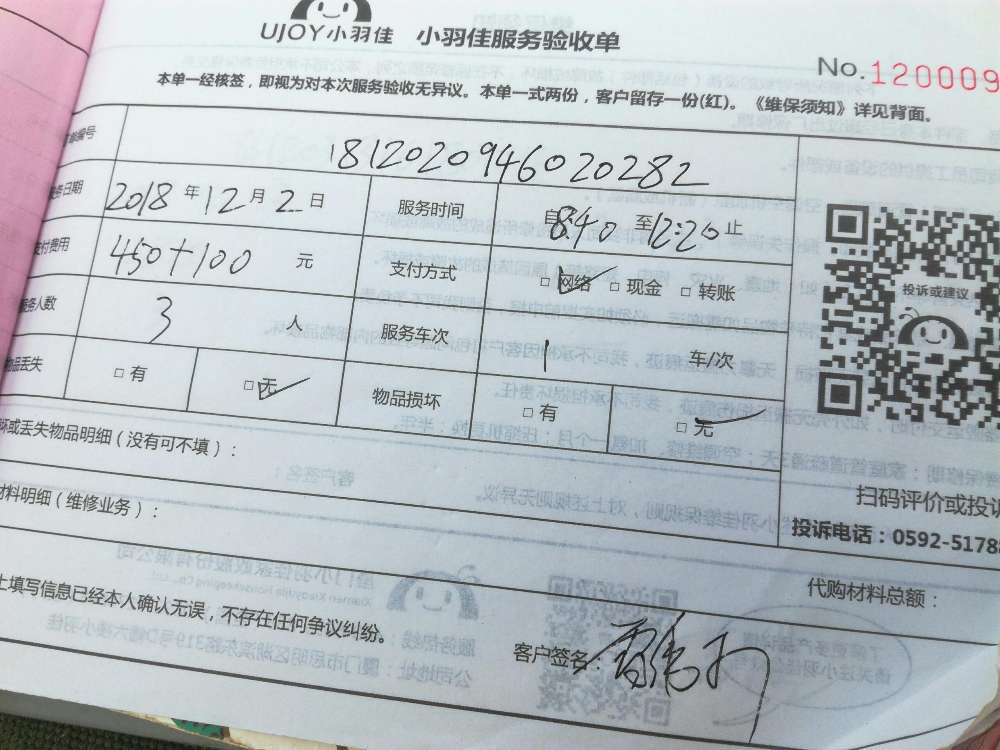 UJOY小羽佳 小羽佳服务验收单
No.120009
本单一经核签，即视为对本次服务验收无异议。本单一式两份，客户留存一份(红)。《维保须知》详见背面。
单编号 181202094602028​2
务日期 2018 年 12 月 2 日 服务时间 自 8:40 至 12:20 止
支付费用 450+100 元 支付方式 □ 网络 □ 现金 □ 转账
服务人数 3 人 服务车次 1 车/次
物品丢失 □ 有 □ 无 物品损坏 □ 有 □ 无
投诉或建议
坏或丢失物品明细（没有可不填）：
扫码评价或投诉
材料明细（维修业务）：
投诉电话：0592-5178
代购材料总额：
上填写信息已经本人确认无误，不存在任何争议纠纷。
客户签名：